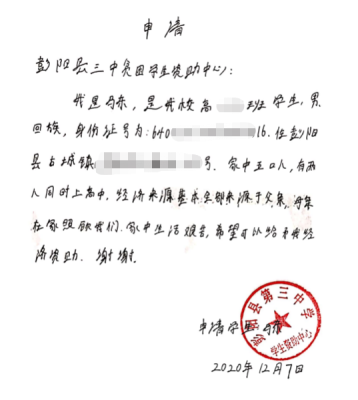 申请
彭阳县三中贫困学生资助中心：
我是马东，是我校高 班学生，男
回族，身份证号为：640 16. 住彭阳
县古城镇 号. 家中五口人，有两
人同时上高中，经济来源基本全部来源于父亲，母亲
在家照顾我们. 家中生活艰苦，希望可以给予我经
济资助. 谢谢.
申请学生：马东
彭阳县第三中学
学生资助中心
2020年12月7日